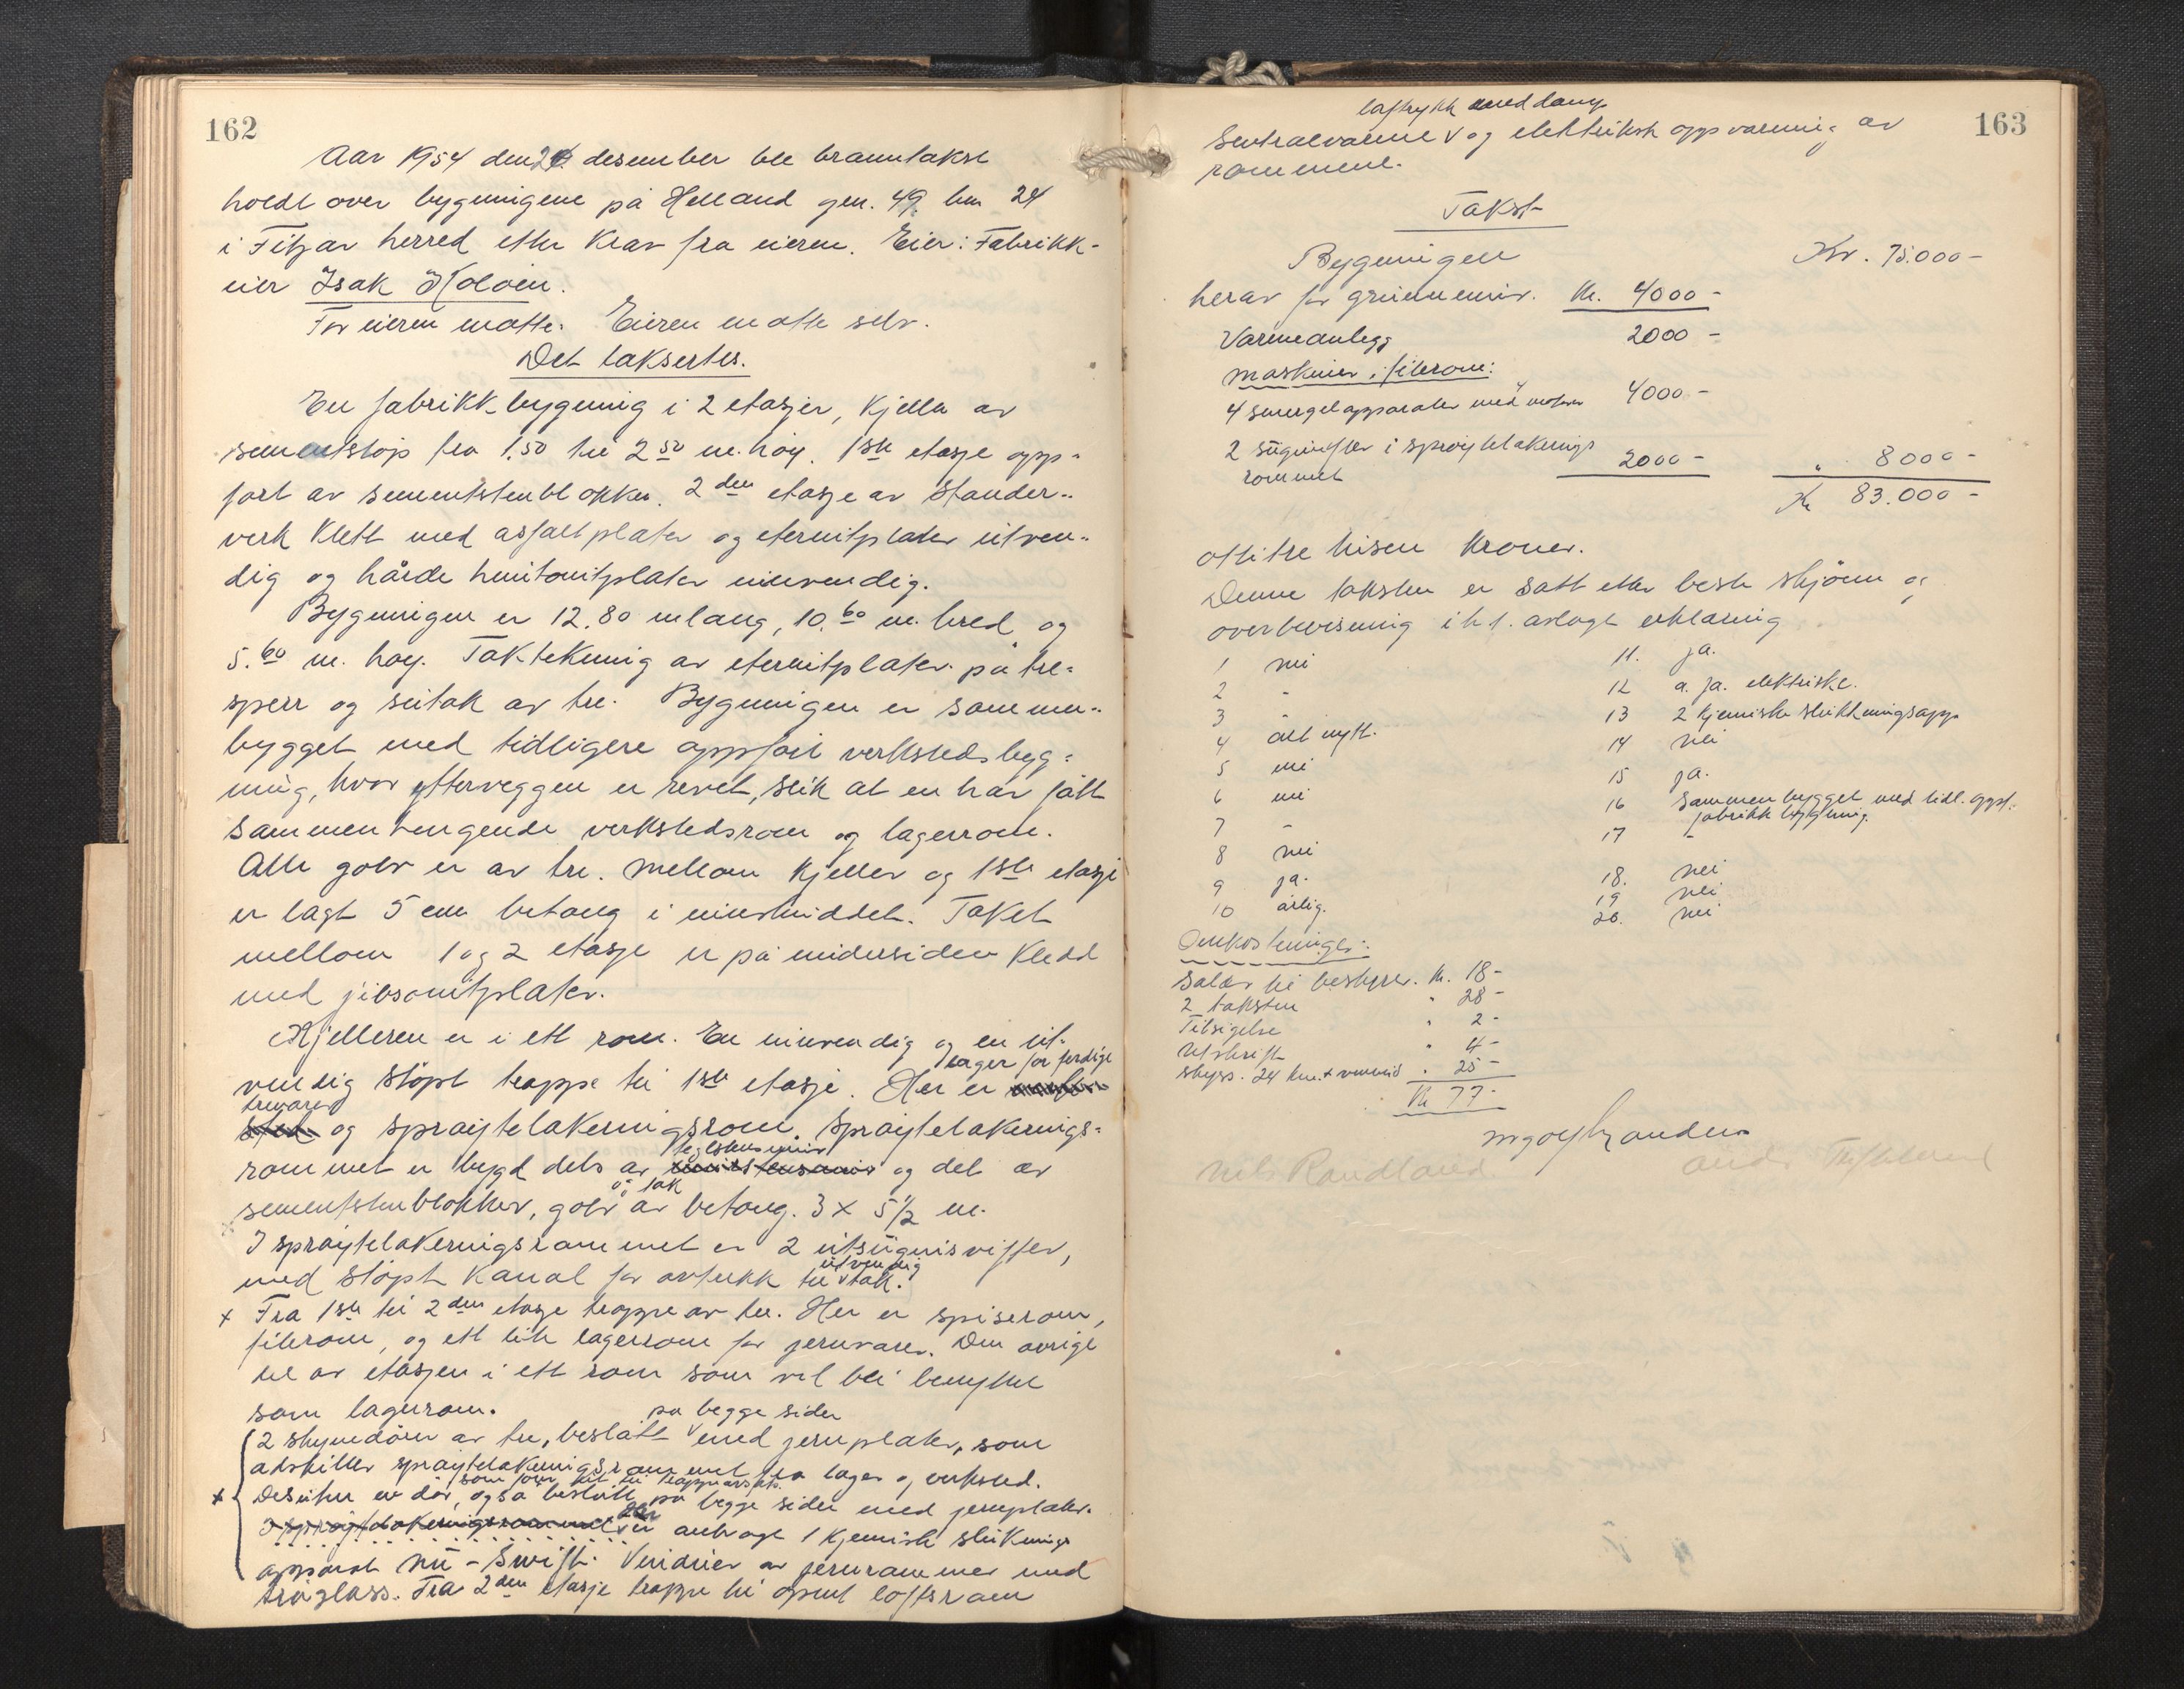 162
Aar 1954 den desember ble branntakst
holdt over bygningene på Helland gnr. 49. bnr 24
i Fitjar herred etter krav fra eieren. Eier: Fabrikk-
eier Isak Kolvin.
For eieren møtte: Eieren møtte selv.
Det taksertes.
En fabrikkbygning i 2 etasjer, kjeller av
sementstøp fra 1.50 til 2 50 m. høy. 1ste etasje opp-
ført av sementstenblokker. 2den etasje av stander-
verk kledt med asfaltplater og eternitplater utven-
dig og hårde huntonitplater innvendig.
Bygningen er 12.80 m lang, 10.60 m. bred og
5.60 m. høy. Taktekning av eternitplater på tre-
sperr og sutak av tre. Bygningen er sammen-
bygget med tidligere oppført verkstedsbyg-
ning, hvor ytterveggen er revet, slik at en har fått
sammenhengende verkstedsrom og lagerrom.
Alle golv er av tre. Mellom kjeller og 1ste etasje
er lagt 5 cm betong i innskuddet. Taket
mellom 1 og 2 etasje er på undersiden kledd
med jibsonitplater.
Kjelleren er i ett rom. En innvendig og en ut-
vendig støpt trappe til 1ste etasje. Her er lager for ferdige
trevarer
og sprøytelakeringsrom. Sprøytelakerings-
rommet er bygd dels av teglstensmur og del av
sementstenblokker, golv og tak av betong. 3 x 5 1/2 m.
I sprøytelakeringsrommet er 2 utsugnisvifter,
med støpt kanal for avtrekk til utvendig tak.
x Fra 1ste til 2den etasje trappe av tre. Her er spiserom,
filerom, og ett lite lagerrom for jernvarer. Den øvrige
del av etasjen i ett rom som vil bli benyttet
som lagerrom.
på begge sider
2 skyvedører av tre, beslått v med jernplater, som
adskiller sprøytelakeringsrommet fra lager og verksted.
som fører
x Desuten en dør, også beslått på begge sider med jernplater.
er anbragt 1 kjemisk sluknings
apparat Nu-Swift. Vinduer av jernrammer med
tråglass. Fra 2den etasje trappe til åpent loftsrom
163
lavtrykk med damp
Sentralvarme v og elektrisk oppvarming av
rommene.
Takst
Bygningen Kr. 75.000-
herav for grunnmur. Kr. 4000-
Varmeanlegg 2000-
Maskiner i filerom:
4 smergelapparater med motorer 4000-
2 sugevifter i sprøytelakerings
rommet 2000- " 8000-
Kr 83.000-
Ottitre tusen kroner.
Denne taksten er satt etter beste skjønn og
overbevisning i h.t. avlagt erklæring
1 nei
2 -
3 -
4 alt nytt.
5 nei
6 nei
7 -
8 nei
9 ja.
10 årlig.
11. ja.
12 a. ja. elektriske.
13 2 kjemiske slukkningsapp.
14 nei
15 ja.
16 Sammenbygget med tidl. oppf.
fabrikkbygning.
17 -
18. nei
19 nei
20. nei
Omkostninger:
Salær til bestyrer. Kr. 18-
2 takstm " 28-
Tilsigelse " 2-
Utskrift " 4-
Skyss. 24 km. + " 25-
Kr 77-
Nils Randland